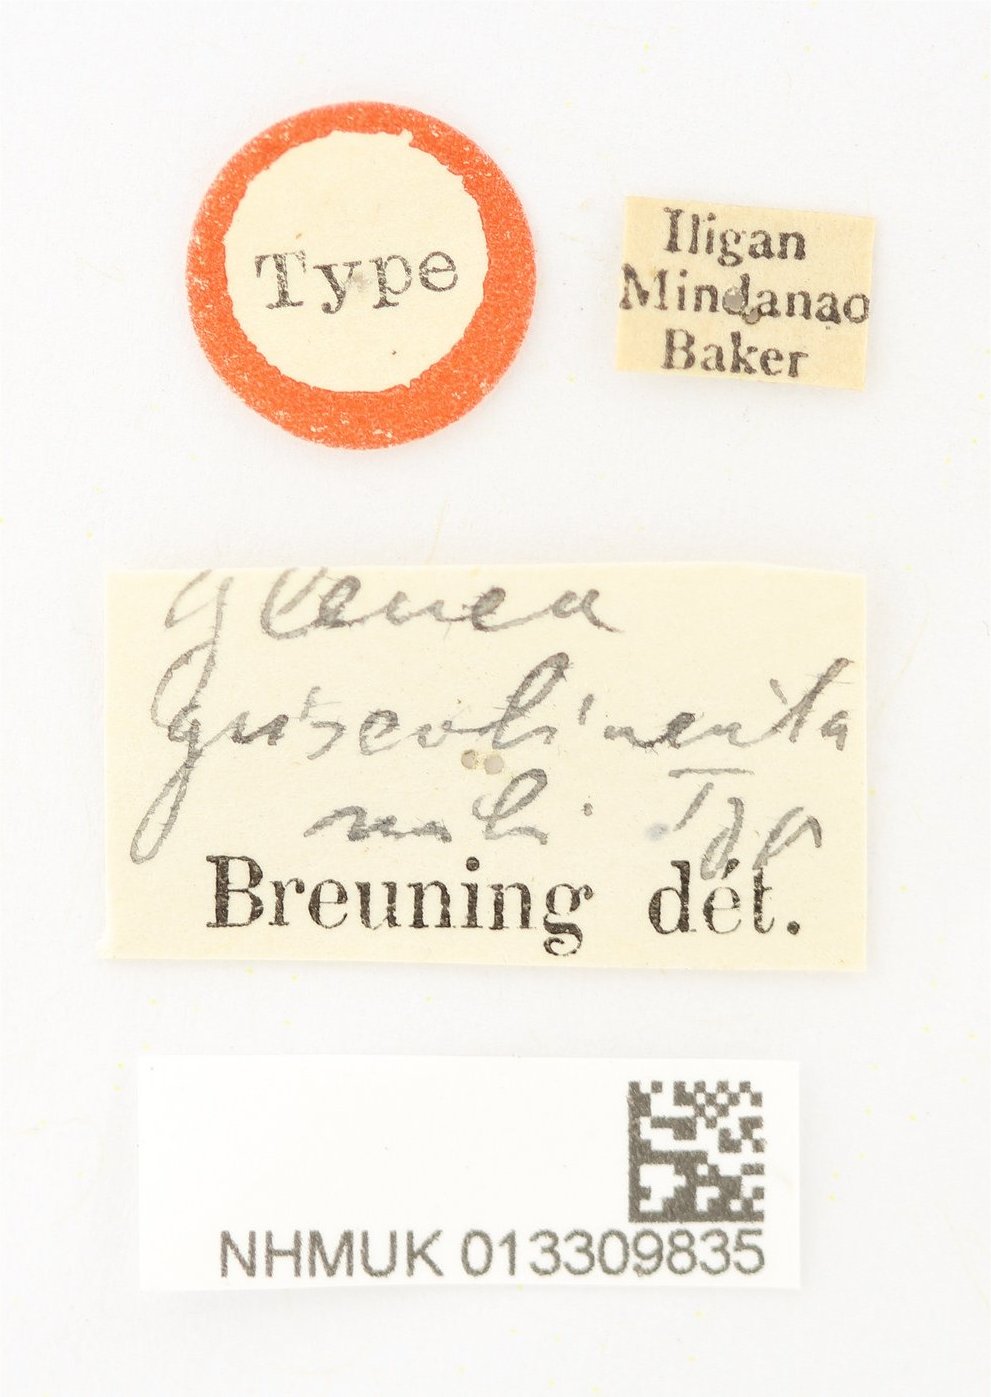 Type
Iligan
Mindanao
Baker
Glenea
griseolineata
mihi Typ
Breuning dét.
NHMUK 013309835